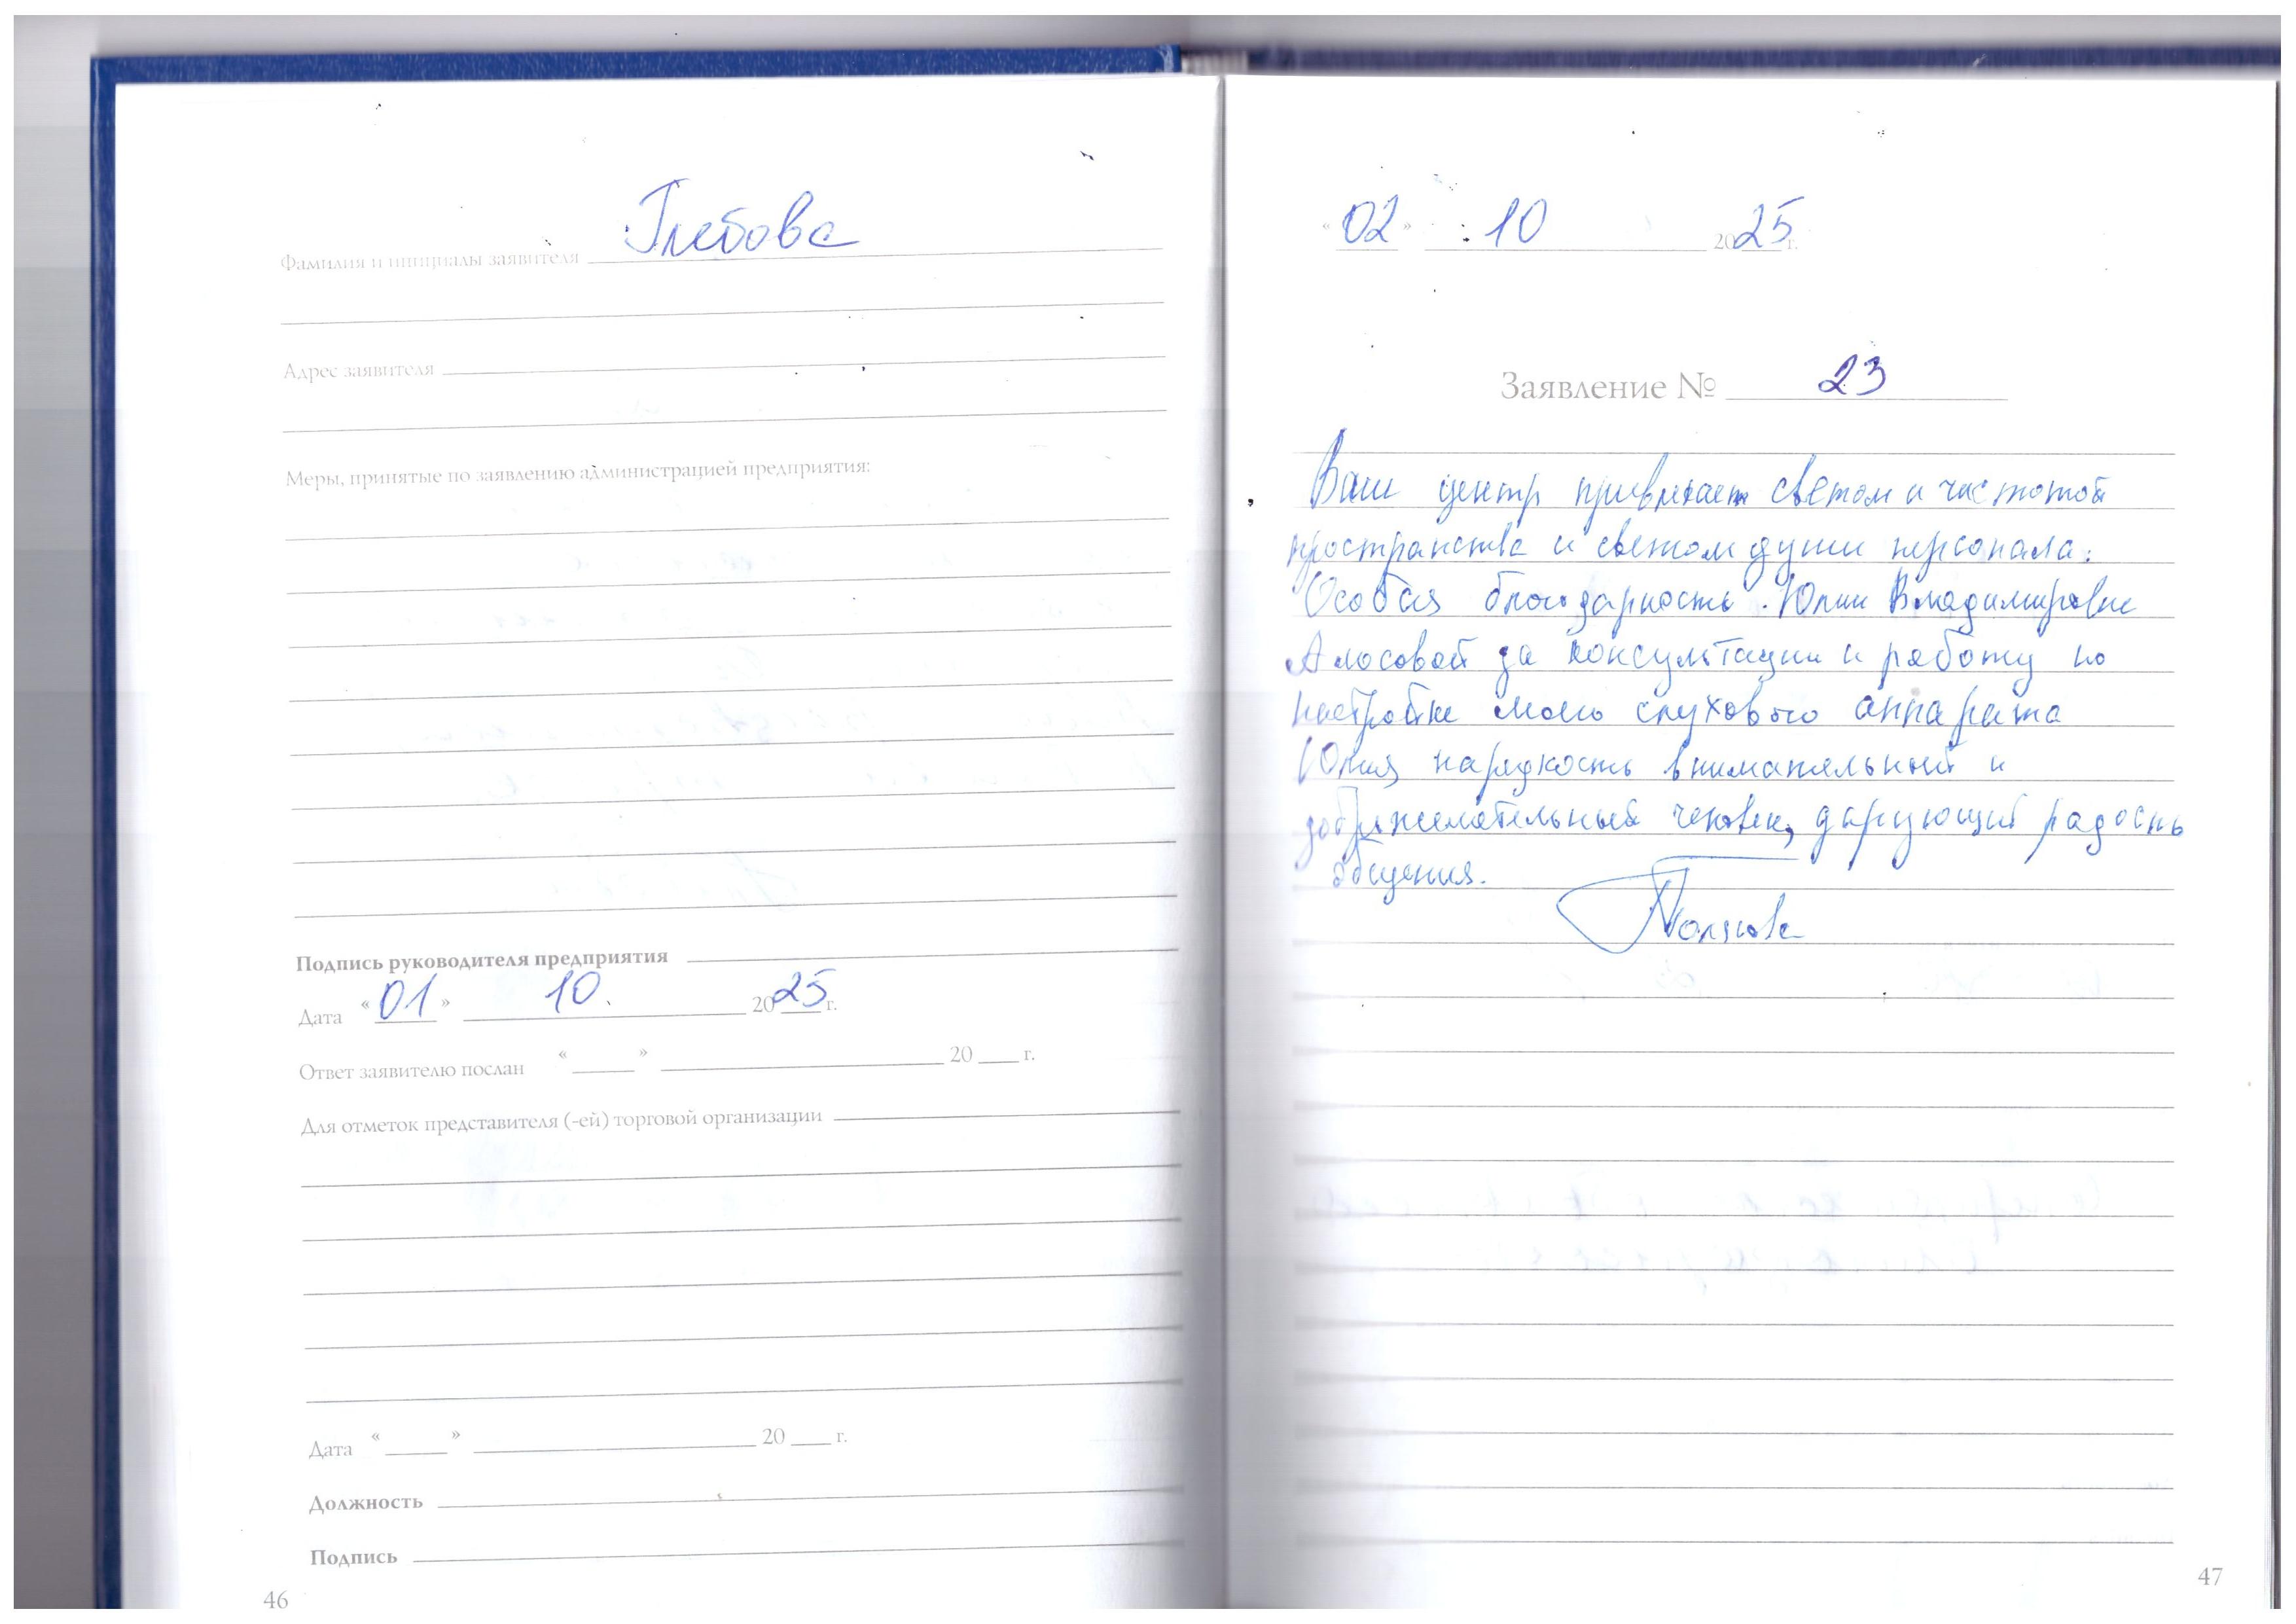 Фамилия и инициалы заявителя Глебова
Адрес заявителя
Меры, принятые по заявлению администрацией предприятия:
Подпись руководителя предприятия
Дата «01» 10. 2025 г.
Ответ заявителю послан « » 20 г.
Для отметок представителя (-ей) торговой организации
Дата « » 20 г.
Должность
Подпись
46
«02» 10 2025 г.
Заявление № 23
Ваш центр привлекает светом и чистотой
пространства и светом души персонала.
Особая благодарность Юлии Владимировне
за консультации и работу по
настройке моего слухового аппарата
Юлия наредкость внимательный и
доброжелательный человек, дарующий радость
общения.
47